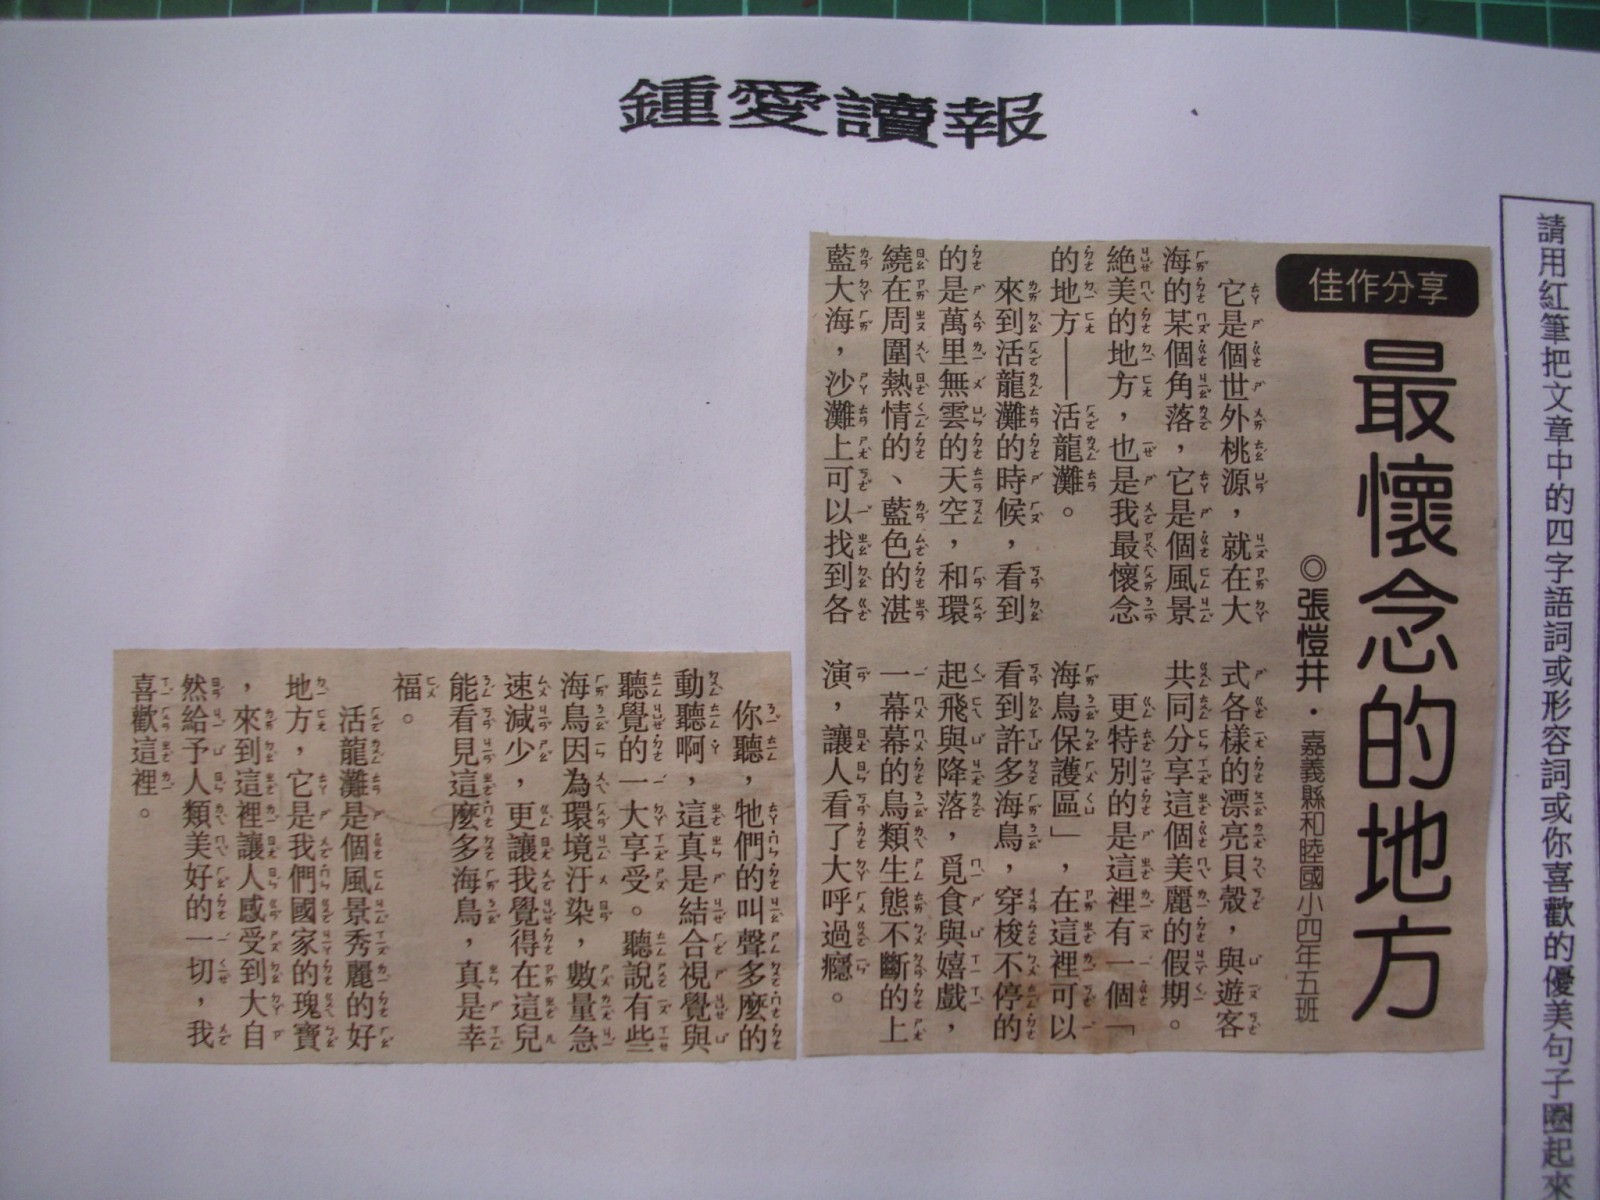 鍾愛讀報
請用紅筆把文章中的四字語詞或形容詞或你喜歡的優美句子圈起來
佳作分享
最懷念的地方
◎張愷井・嘉義縣和睦國小四年五班
它是個世外桃源，就在大
海的某個角落，它是個風景
絕美的地方，也是我最懷念
的地方——活龍灘。
來到活龍灘的時候，看到
的是萬里無雲的天空，和環
繞在周圍熱情的、藍色的湛
藍大海，沙灘上可以找到各
式各樣的漂亮貝殼，與遊客
共同分享這個美麗的假期。
更特別的是這裡有一個「
海鳥保護區」，在這裡可以
看到許多海鳥，穿梭不停的
起飛與降落，覓食與嬉戲，
一幕幕的鳥類生態不斷的上
演，讓人看了大呼過癮。
你聽，牠們的叫聲多麼的
動聽啊，這真是結合視覺與
聽覺的一大享受。聽說有些
海鳥因為環境汙染，數量急
速減少，更讓我覺得在這兒
能看見這麼多海鳥，真是幸
福。
活龍灘是個風景秀麗的好
地方，它是我們國家的瑰寶
，來到這裡讓人感受到大自
然給予人類美好的一切，我
喜歡這裡。